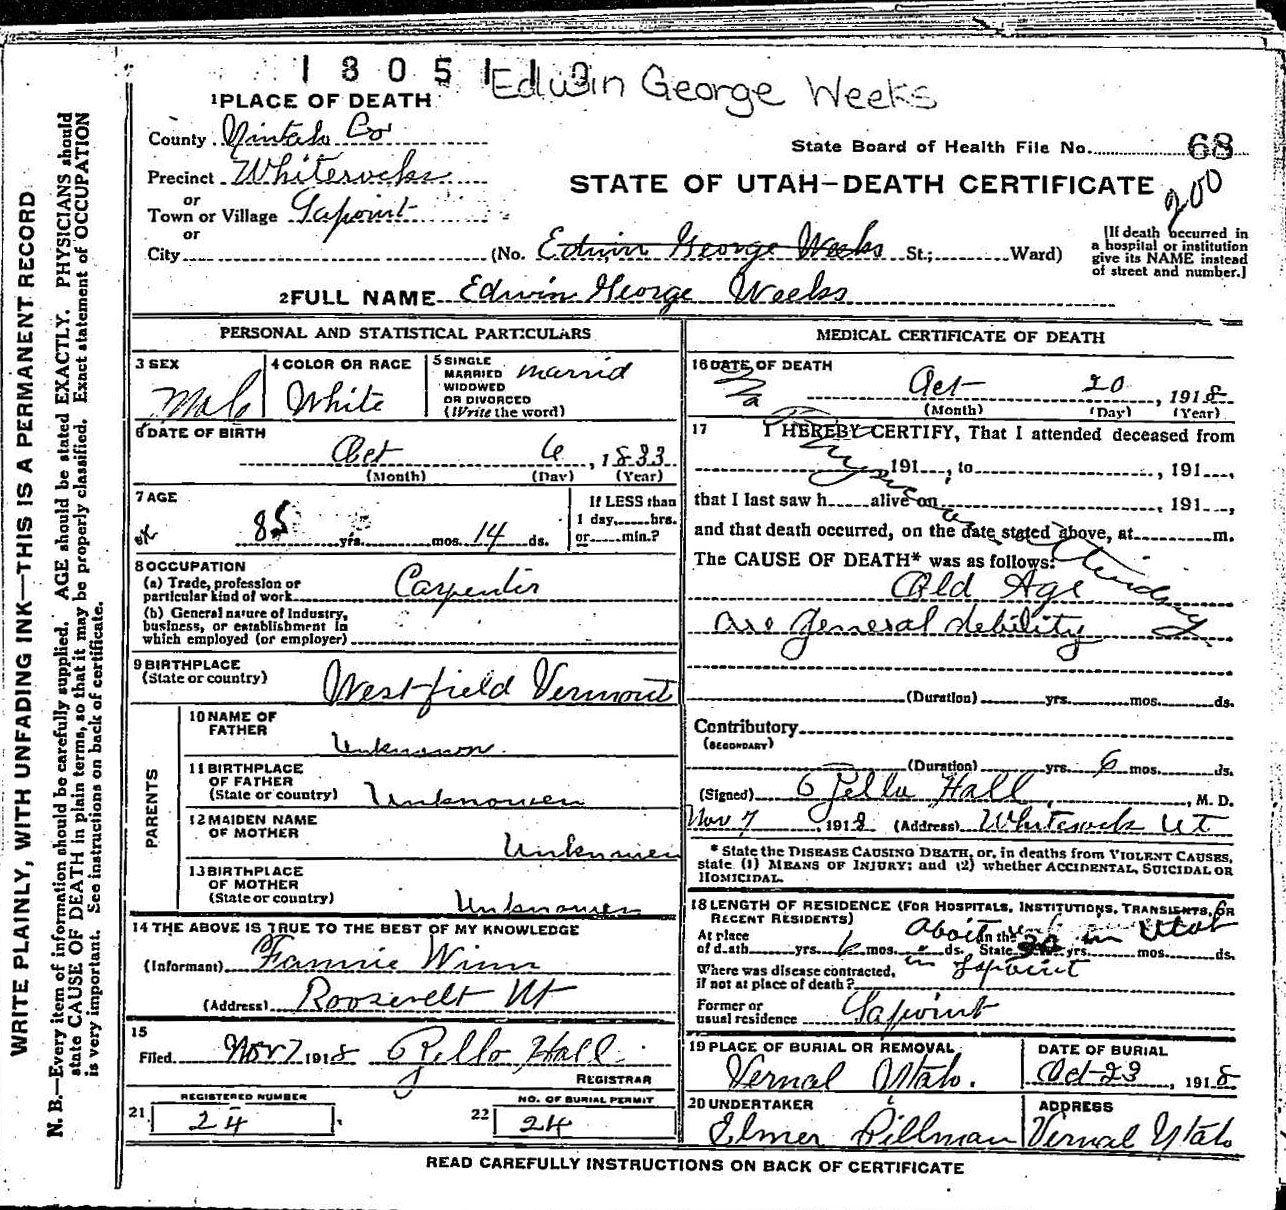 1805113
Edwin George Weeks
1 PLACE OF DEATH
County Uintah Co
State Board of Health File No. 68
Precinct Whiterocks
STATE OF UTAH—DEATH CERTIFICATE
200
or
Town or Village Lapoint
or
City (No. Edwin George Weeks St.; Ward)
[If death occurred in a hospital or institution give its NAME instead of street and number.]
2 FULL NAME Edwin George Weeks
PERSONAL AND STATISTICAL PARTICULARS
3 SEX
Male
4 COLOR OR RACE
White
5 SINGLE MARRIED WIDOWED OR DIVORCED (Write the word)
married
6 DATE OF BIRTH
Oct 6, 1833
(Month) (Day) (Year)
7 AGE
85 yrs. mos. 14 ds.
If LESS than
1 day, hrs.
or min.?
8 OCCUPATION
(a) Trade, profession or
particular kind of work Carpenter
(b) General nature of Industry,
business, or establishment in
which employed (or employer)
9 BIRTHPLACE
(State or country) Westfield Vermont
PARENTS
10 NAME OF
FATHER Unknown
11 BIRTHPLACE
OF FATHER
(State or country) Unknowen
12 MAIDEN NAME
OF MOTHER Unknowen
13 BIRTHPLACE
OF MOTHER
(State or country) Unknowen
14 THE ABOVE IS TRUE TO THE BEST OF MY KNOWLEDGE
(Informant) Fannie Winn
(Address) Roosevelt Ut
15
Filed Nov 7 1918 Hall
REGISTRAR
REGISTERED NUMBER
21 24
NO. OF BURIAL PERMIT
22 24
MEDICAL CERTIFICATE OF DEATH
16 DATE OF DEATH
Oct 20, 1918
(Month) (Day) (Year)
17 I HEREBY CERTIFY, That I attended deceased from
191 , to , 191 ,
that I last saw h alive on , 191 ,
and that death occurred, on the date stated above, at m.
The CAUSE OF DEATH* was as follows:
Old Age
general debility
(Duration) yrs. mos. ds.
Contributory
(SECONDARY)
(Duration) yrs. 6 mos. ds.
(Signed) Hall, M. D.
Nov 7, 1918 (Address) Whiterock Ut
* State the DISEASE CAUSING DEATH, or, in deaths from VIOLENT CAUSES,
state (1) MEANS OF INJURY; and (2) whether ACCIDENTAL, SUICIDAL OR
HOMICIDAL.
18 LENGTH OF RESIDENCE (FOR HOSPITALS, INSTITUTIONS, TRANSIENTS, OR
RECENT RESIDENTS)
At place
of death yrs. 6 mos. ds. In the State 30 yrs. mos. ds.
in Utah
Where was disease contracted,
if not at place of death? in Lapoint
Former or
usual residence Lapoint
19 PLACE OF BURIAL OR REMOVAL
Vernal Utah.
DATE OF BURIAL
Oct 23, 1918
20 UNDERTAKER
Elmer Pillman
ADDRESS
Vernal Utah
READ CAREFULLY INSTRUCTIONS ON BACK OF CERTIFICATE
WRITE PLAINLY, WITH UNFADING INK—THIS IS A PERMANENT RECORD
N. B.—Every item of information should be carefully supplied. AGE should be stated EXACTLY. PHYSICIANS should
state CAUSE OF DEATH in plain terms, so that it may be properly classified. Exact statement of OCCUPATION
is very important. See instructions on back of certificate.